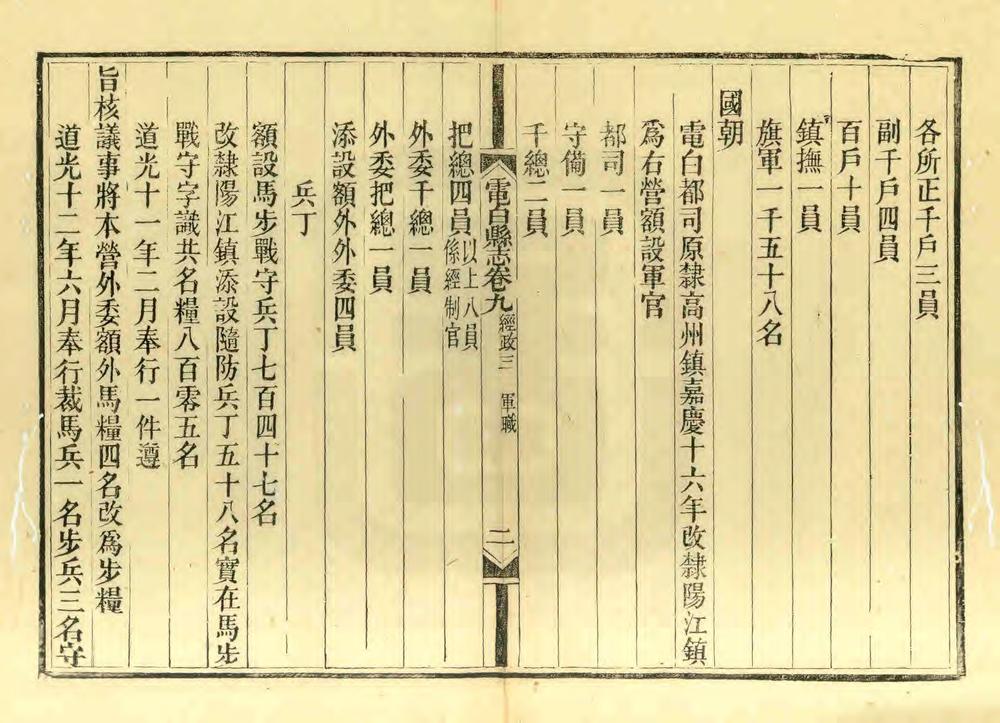 各所正千戶三員
副千戶四員
百戶十員
鎮撫一員
旗軍一千五十八名
國朝
電白都司原隸高州鎮嘉慶十六年改隸陽江鎮
爲右營額設軍官
都司一員
守備一員
千總二員
電白縣志卷九 經政三 軍職 二
把總四員以上八員係經制官
外委千總一員
外委把總一員
添設額外外委四員
兵丁
額設馬步戰守兵丁七百四十七名
改隸陽江鎮添設隨防兵丁五十八名實在馬步
戰守字識共名糧八百零五名
道光十一年二月奉行一件遵
旨核議事將本營外委額外馬糧四名改爲步糧
道光十二年六月奉行裁馬兵一名步兵三名守